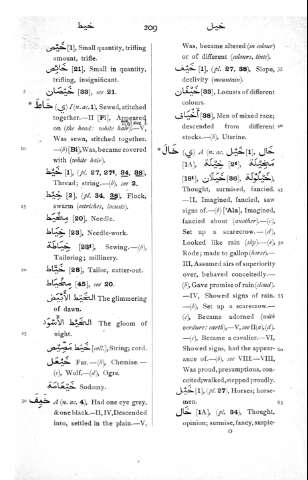 خيط 209 خيل
خَيْص [1], Small quantity, trifling
amount, trifle.
خَائِص [21], Small in quantity,
trifling, insignificant.
خَيْصَان [33], see 21.
* خَاطَ (ي) I (n. ac. 1), Sewed, stitched
together.—II [Fi], Appeared
on (the head: white hair).—V,
Was sewn, stitched together.
—(b) [Bi], Was, became covered
with (white hair).
خَيْط [1], (pl. 27, 27¹, 34, 38),
Thread; string.—(b), see 2.
خِيط [2], (pl. 34, 38), Flock,
swarm (ostriches, locusts).
مِخْيَط [20], Needle.
خِيَاط [23], Needle-work.
خِيَاطَة [23¹], Sewing.—(b),
Tailoring; millinery.
خَيَّاط [28], Tailor, cutter-out.
مِخْيَاط [45], see 20.
الخَيْط الأَبْيَض The glimmering
of dawn.
الخَيْط الأَسْوَد The gloom of
night.
[coll.], String; cord.
خَيْعَل Fur.—(b), Chemise.—
(c), Wolf.—(d), Ogre.
خَيْعَامَة Sodomy.
خَيِفَ A (n. ac. 4), Had one eye grey,
& one black.—II, IV, Descended
into, settled in the plain.—V,
Was, became altered (in colour)
or of different (colours, tints).
خَيْف [1], (pl. 27, 38), Slope,
declivity (mountain).
خَيْفَان [33], Locusts of different
colours.
أَخْيَاف [38], Men of mixed race;
descended from different
stocks.—(b), Uterine.
* خَالَ (ي) A (n. ac. خَيْل [1], خَال
[1A], خَيْلَة [2¹], مَخِيلَة
[18¹], خَيَلَان [36], خَيْلُولَة),
Thought, surmised, fancied.
—II, Imagined, fancied, saw
signs of.—(b) ['Ala], Imagined,
fancied about (another).—(c),
Set up a scarecrow.—(d),
Looked like rain (sky).—(e),
Rode; made to gallop (horse).—
III, Assumed airs of superiority
over, behaved conceitedly.—
(b), Gave promise of rain (cloud).
—IV, Showed signs of rain.
—(b), Set up a scarecrow.—
(c), Became adorned (with
verdure: earth).—V, see II, (a), (d).
—(c), Became a cavalier.—VI,
Showed signs, had the appear-
ance of.—(b), see VIII.—VIII,
Was proud, presumptious, con-
ceited; walked, stepped proudly.
خَيْل [1], (pl. 27), Horses; horse-
men.
خَال [1A], (pl. 34), Thought,
opinion; surmise, fancy, suspic-
O